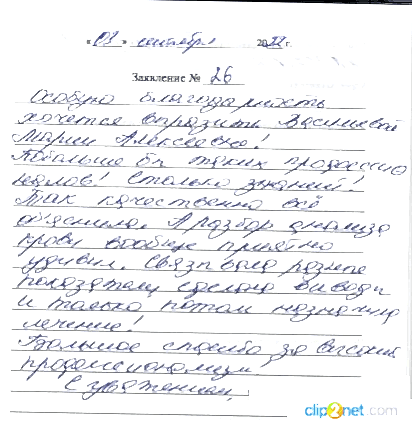 « 03 » сентября 2022 г.
Заявление № 26
Особую благодарность
хочется выразить Васильевой
Марии Алексеевне!
Побольше бы таких професcио
налов! Столько знаний!
Так качественно всё
объяснила. А разбор анализа
крови вообще приятно
удивил. Связывала разные
показатели, сделала выводы
и только потом назначила
лечение!
Большое спасибо за высокий
профессионализм!
С уважением,
clip2net.com